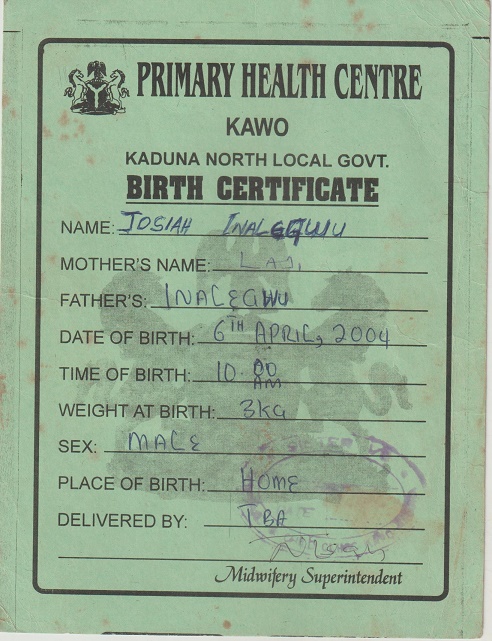 PRIMARY HEALTH CENTRE
KAWO
KADUNA NORTH LOCAL GOVT.
BIRTH CERTIFICATE
NAME: JOSIAH INALEGWU
MOTHER'S NAME: LAJ,
FATHER'S: INALEGWU
DATE OF BIRTH: 6TH APRIL, 2004
TIME OF BIRTH: 10.00 AM
WEIGHT AT BIRTH: 3KG
SEX: MALE
PLACE OF BIRTH: HOME
DELIVERED BY: TBA
Midwifery Superintendent